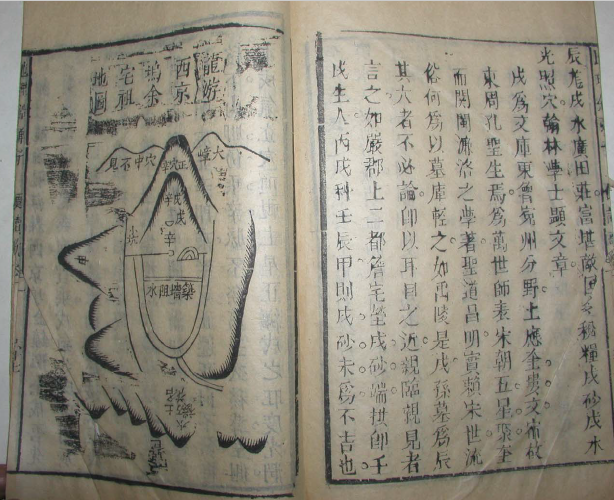 辰龙戌水廣田莊富堪敵国多積糧戌砂戌水
光照穴翰林學士顯文章
戌爲文庫東魯兗州分野上應奎婁文布故
東周孔聖生焉爲萬世師表宋朝五星聚奎
而関閩濂洛之學著聖道昌明實頼宋世流
俗何爲以墓庫輕之如禹陵是戌孫墓爲辰
其大者不必論即以耳目之近親臨親見者
言之如嚴郡上二都詹宅塋戌砂端拱卯千
戌生人丙戌科壬辰甲則戌砂未爲不吉也
龍游
西京
塢金
宅祖
地圖
大嶂
穴中不見
正穴
戌
辛
築墻阻水
水纏